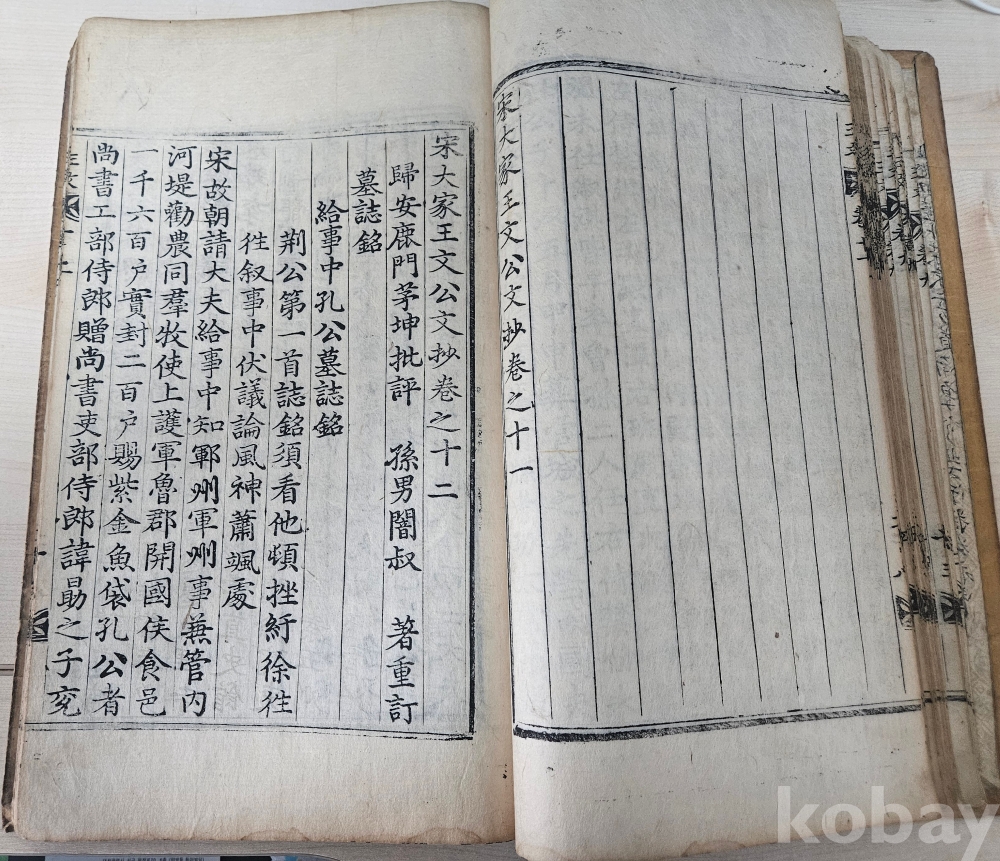 宋大家王文公文抄卷之十一
宋大家王文公文抄卷之十二
歸安鹿門茅坤批評 孫男闇叔 著重訂
墓誌銘
給事中孔公墓誌銘
荆公第一首誌銘須看他頓挫紆徐徃
徃叙事中伏議論風神蕭颯處
宋故朝請大夫給事中知鄆州軍州事兼管内
河堤勸農同羣牧使上護軍魯郡開國侯食邑
一千六百户實封二百户賜紫金魚袋孔公者
尚書工部侍郎贈尚書吏部侍郎諱勗之子兖
kobay